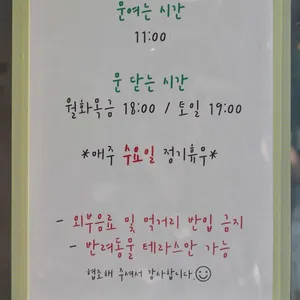 문여는 시간
11:00
문 닫는 시간
월화목금 18:00 / 토일 19:00
*매주 수요일 정기휴무*
- 외부음료 및 먹거리 반입 금지
- 반려동물 테라스만 가능
협조해 주셔서 감사합니다